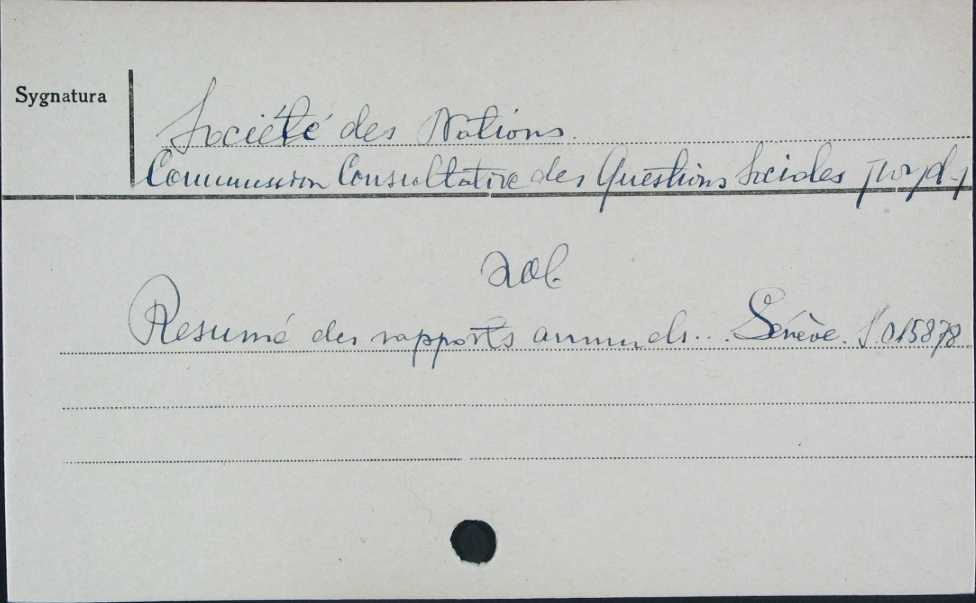 Sygnatura
Société des Nations.
Commission Consultative des Questions Sociales /wyd./
zob.
Resumé des rapports annuels... Genève. S.015878.